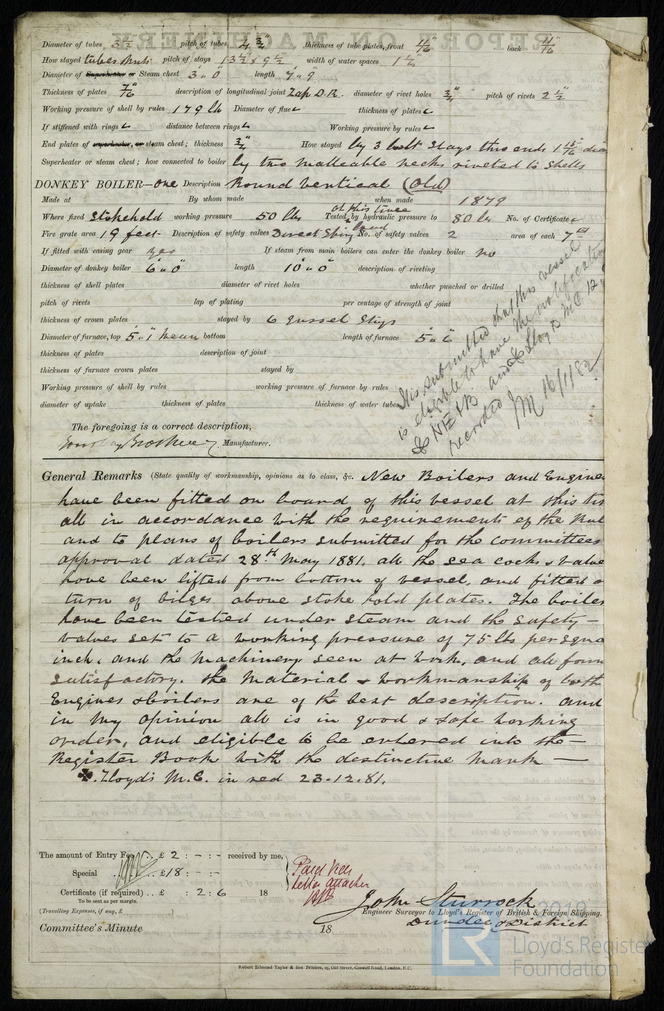 Diameter of tubes 3 1/2" pitch of tubes 4 3/4" thickness of tube plates, front 11/16" back 11/16"
How stayed tubes & nuts pitch of stays 13 1/2 x 9 1/2 width of water spaces 1 1/4"
Diameter of Superheater or Steam chest 3' 0" length 7' 9"
Thickness of plates 7/16" description of longitudinal joint Lap D.R. diameter of rivet holes 3/4" pitch of rivets 2 1/2"
Working pressure of shell by rules 179 lb Diameter of flue thickness of plates
If stiffened with rings distance between rings Working pressure by rules
End plates of superheater, or steam chest; thickness 3/4" How stayed by 3 bolt stays thro ends
Superheater or steam chest; how connected to boiler by two malleable necks riveted to shells
DONKEY BOILER—one Description Round vertical (Old)
Made at By whom made when made 1879
Where fixed Stokehold working pressure 50 lbs Tested at this time by hydraulic pressure to 80 lbs No. of Certificate
Fire grate area 19 feet Description of safety valves Direct Spring No. of safety valves 2 area of each 7
If fitted with easing gear yes If steam from main boilers can enter the donkey boiler no
Diameter of donkey boiler 6' 0" length 10' 0" description of riveting
thickness of shell plates diameter of rivet holes whether punched or drilled
pitch of rivets lap of plating per centage of strength of joint
thickness of crown plates stayed by 6 gusset Stays
Diameter of furnace, top 5' 1" mean bottom length of furnace 5' 6"
thickness of plates description of joint
thickness of furnace crown plates stayed by
Working pressure of shell by rules working pressure of furnace by rules
diameter of uptake thickness of plates thickness of water tubes
It is submitted that this vessel
is eligible to have the notification
& NE & NB and & Lloyd's MC 12
recorded JM 16/1/82
The foregoing is a correct description,
Gourlay Brothers Manufacturer.
General Remarks (State quality of workmanship, opinions as to class, &c. New Boilers and Engines
have been fitted on board of this vessel at this tim
all in accordance with the requirements of the Rul
and to plans of boilers submitted for the committees
approval dated 28th May 1881. all the sea cocks & valves
have been lifted from bottom of vessel, and fitted
turn of bilges above stoke hold plates. The boiler
have been tested under steam and the safety –
valves set to a working pressure of 75 lbs per squa
inch, and the Machinery seen at work, and all foun
satisfactory. the Material & workmanship of both
Engines & boilers are of the best description. and
in my opinion all is in good & safe working
order, and eligible to be entered into the –
Register Book with the distinctive Mark —
✠. Lloyds M.C. in red 23-12.81.
The amount of Entry Fee .. £ 2 : - : - received by me,
Special .. £ 18 : - : -
Certificate (if required) .. £ : 2 : 6 18
To be sent as per margin.
(Travelling Expenses, if any, £
Paid vide
letter attached
John Sturrock
Engineer Surveyor to Lloyd's Register of British & Foreign Shipping.
Dundee District
Committee's Minute 18
2019
LR
Lloyd's Register
Foundation
Robert Edmund Taylor & Son Printers, 19, Old Street, Goswell Road, London, E.C.